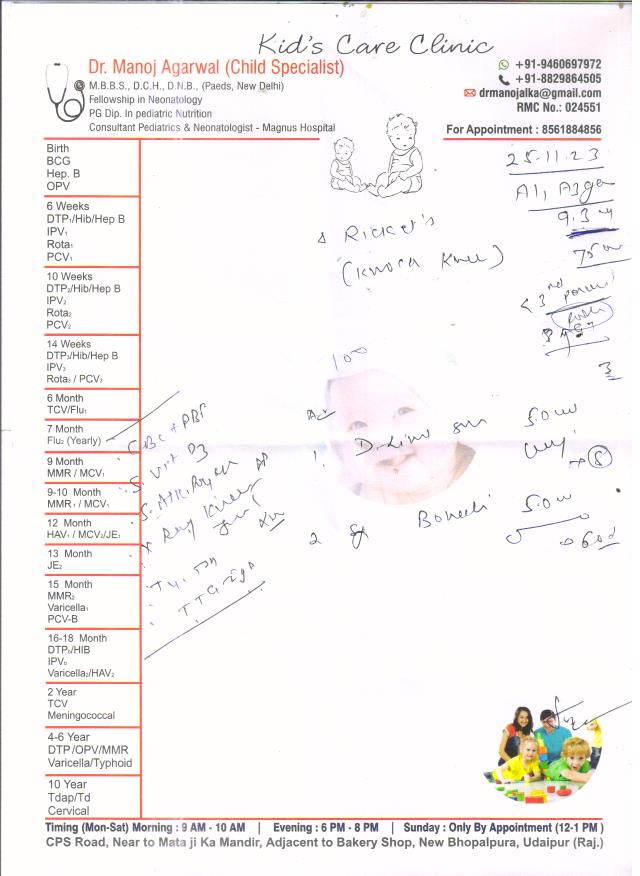 Kid's Care Clinic
Dr. Manoj Agarwal (Child Specialist)
M.B.B.S., D.C.H., D.N.B., (Paeds, New Delhi)
Fellowship in Neonatology
PG Dip. In pediatric Nutrition
Consultant Pediatrics & Neonatologist - Magnus Hospital
+91-9460697972
+91-8829864505
drmanojalka@gmail.com
RMC No.: 024551
For Appointment : 8561884856
25.11.23
9.3
Δ Ricket's
(Knock Knee)
100
3
CBC + PBF
S. Vit D3
S.
X Ray Knee AP
TTG IgA
Adv
1. 5.0 ml
→ (8)
2 5.0 ml
→ 60d
Birth
BCG
Hep. B
OPV
6 Weeks
DTP₁/Hib/Hep B
IPV₁
Rota₁
PCV₁
10 Weeks
DTP₂/Hib/Hep B
IPV₂
Rota₂
PCV₂
14 Weeks
DTP₃/Hib/Hep B
IPV₃
Rota₃ / PCV₃
6 Month
TCV/Flu₁
7 Month
Flu₂ (Yearly)
9 Month
MMR / MCV₁
9-10 Month
MMR₁ / MCV₁
12 Month
HAV₁ / MCV₂/JE₁
13 Month
JE₂
15 Month
MMR₂
Varicella₁
PCV-B
16-18 Month
DTPᵦ/HIB
IPVᵦ
Varicella₂/HAV₂
2 Year
TCV
Meningococcal
4-6 Year
DTP/OPV/MMR
Varicella/Typhoid
10 Year
Tdap/Td
Cervical
Timing (Mon-Sat) Morning : 9 AM - 10 AM | Evening : 6 PM - 8 PM | Sunday : Only By Appointment (12-1 PM )
CPS Road, Near to Mata ji Ka Mandir, Adjacent to Bakery Shop, New Bhopalpura, Udaipur (Raj.)